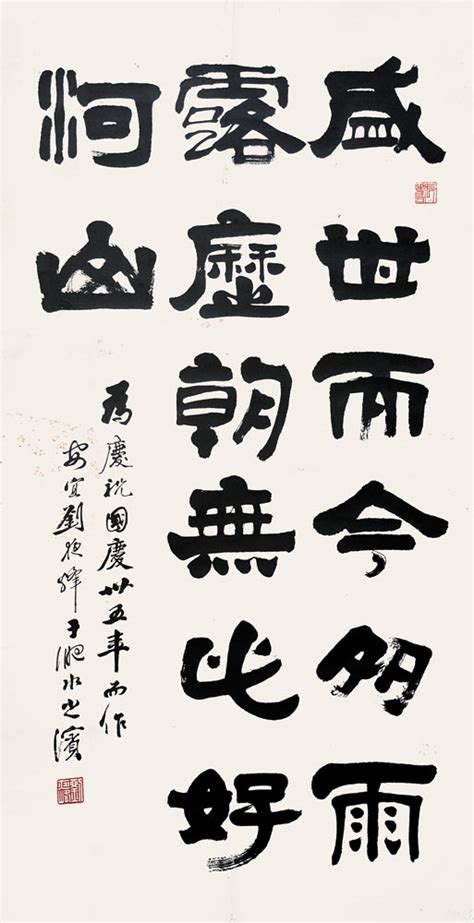 盛世而今多雨
露歷朝無比好
河山
為慶祝國慶卅五年而作
安宜劉夜烽于淝水之濱